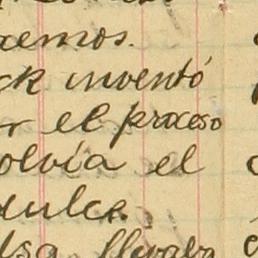 xemos.
ck inventó
r el proceso
olvía el
dulce.
lsa llevaba